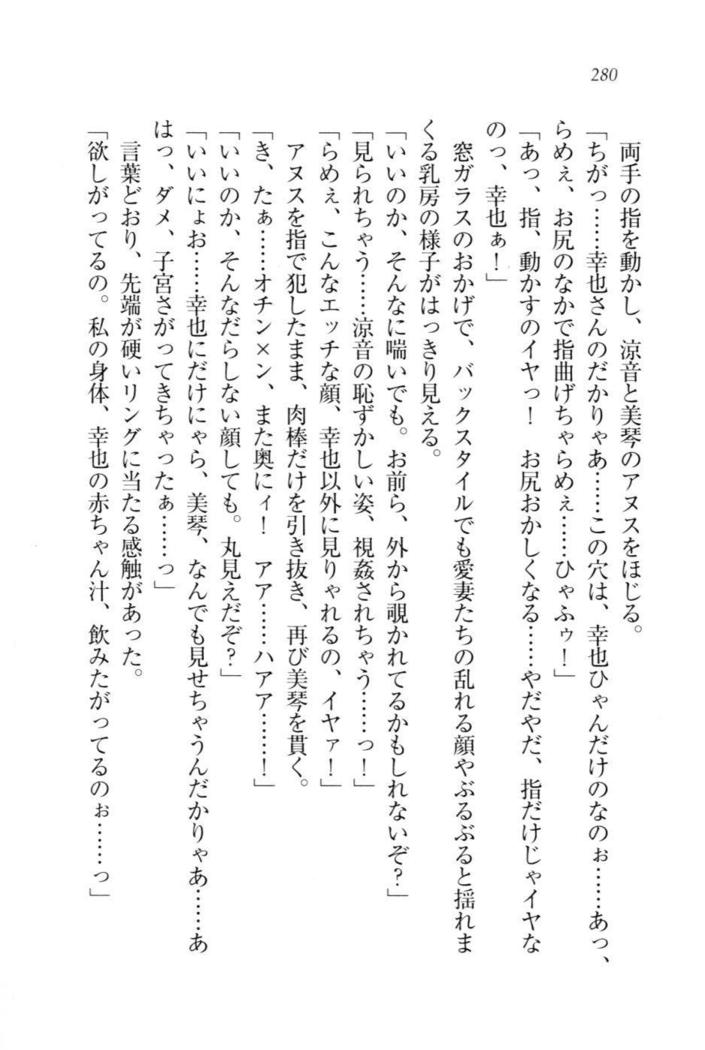 280
両手の指を動かし、涼音と美琴のアヌスをほじる。
「ちがっ……幸也さんのだかりゃあ……この穴は、幸也ひゃんだけのなのぉ……あっ、
らめぇ、お尻のなかで指曲げちゃらめぇ……ひゃふゥ!」
「あっ、指、動かすのイヤっ! お尻おかしくなる……やだやだ、指だけじゃイヤな
のっ、幸也ぁ!」
窓ガラスのおかげで、バックスタイルでも愛妻たちの乱れる顔やぶるぶると揺れま
くる乳房の様子がはっきり見える。
「いいのか、そんなに喘いでも。お前ら、外から覗かれてるかもしれないぞ?」
「見られちゃう……涼音の恥ずかしい姿、視姦されちゃう……っ!」
「らめぇ、こんなエッチな顔、幸也以外に見りゃれるの、イヤァ!」
アヌスを指で犯したまま、肉棒だけを引き抜き、再び美琴を貫く。
「き、たぁ……オチン×ン、また奥にィ! アア……ハアア……!」
「いいのか、そんなだらしない顔しても。丸見えだぞ?」
「いいにょお……幸也にだけにゃら、美琴、なんでも見せちゃうんだかりゃあ……あ
はっ、ダメ、子宮さがってきちゃったぁ……っ」
言葉どおり、先端が硬いリングに当たる感触があった。
「欲しがってるの。私の身体、幸也の赤ちゃん汁、飲みたがってるのぉ……っ」